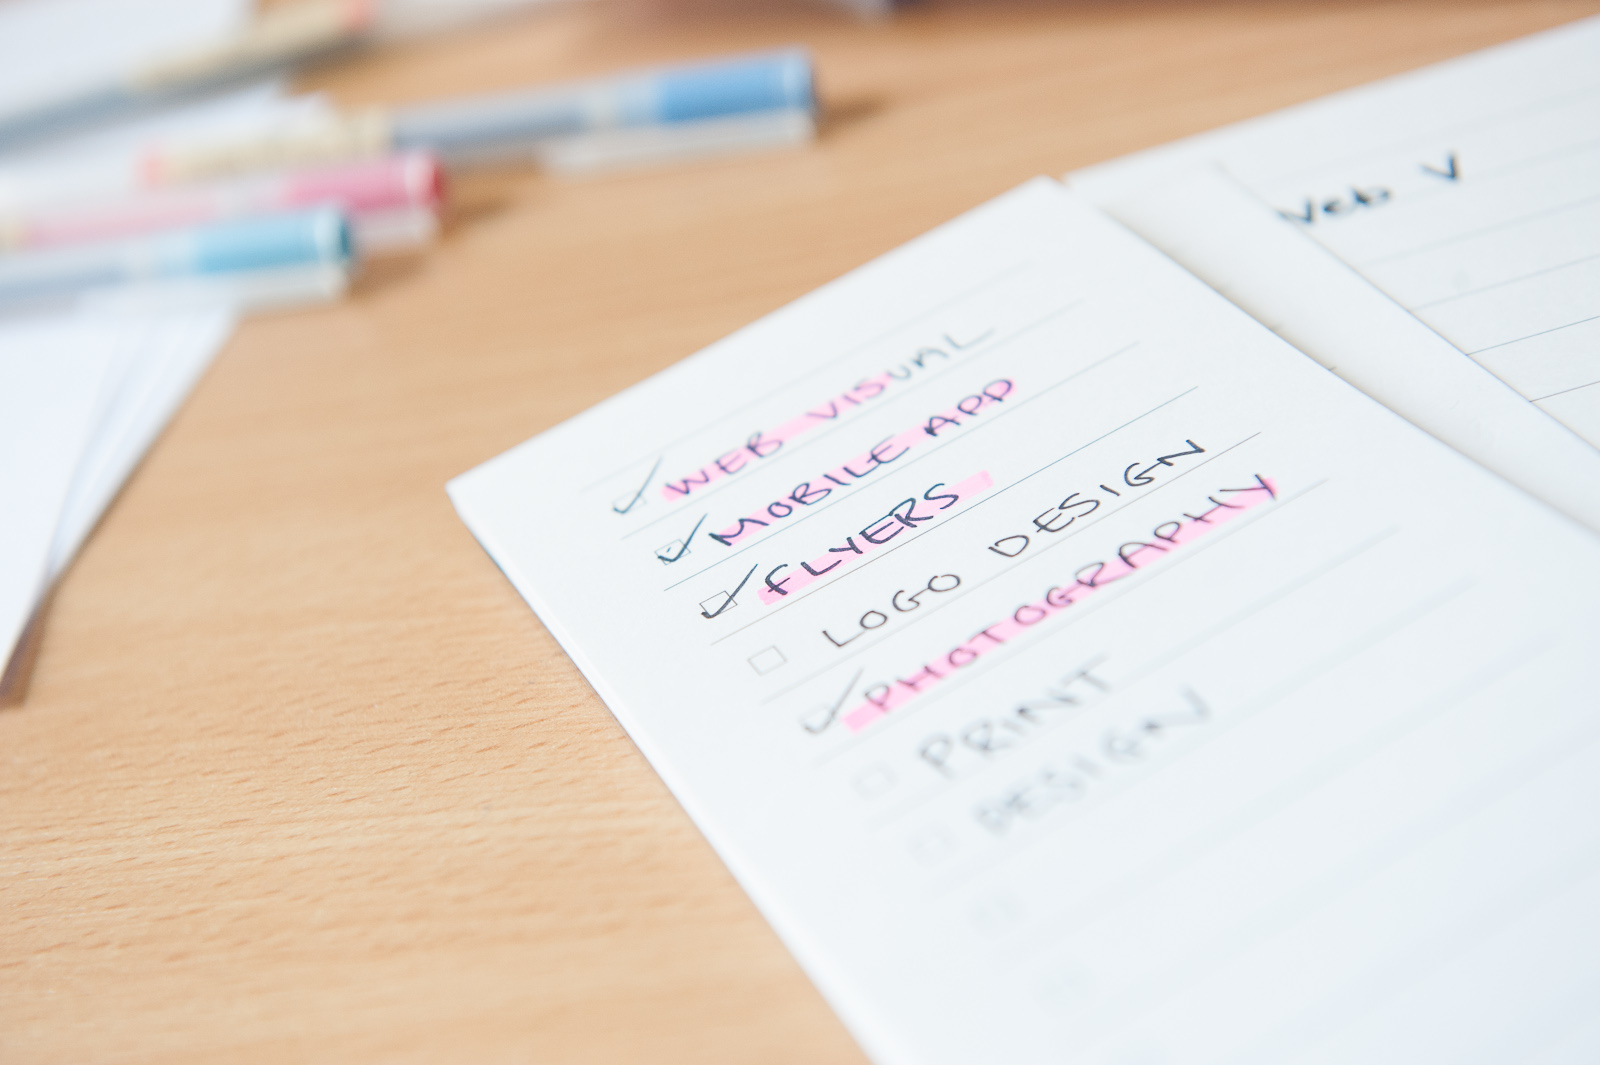 WEB VISUAL
MOBILE APP
FLYERS
LOGO DESIGN
PHOTOGRAPHY
PRINT
DESIGN
Web V